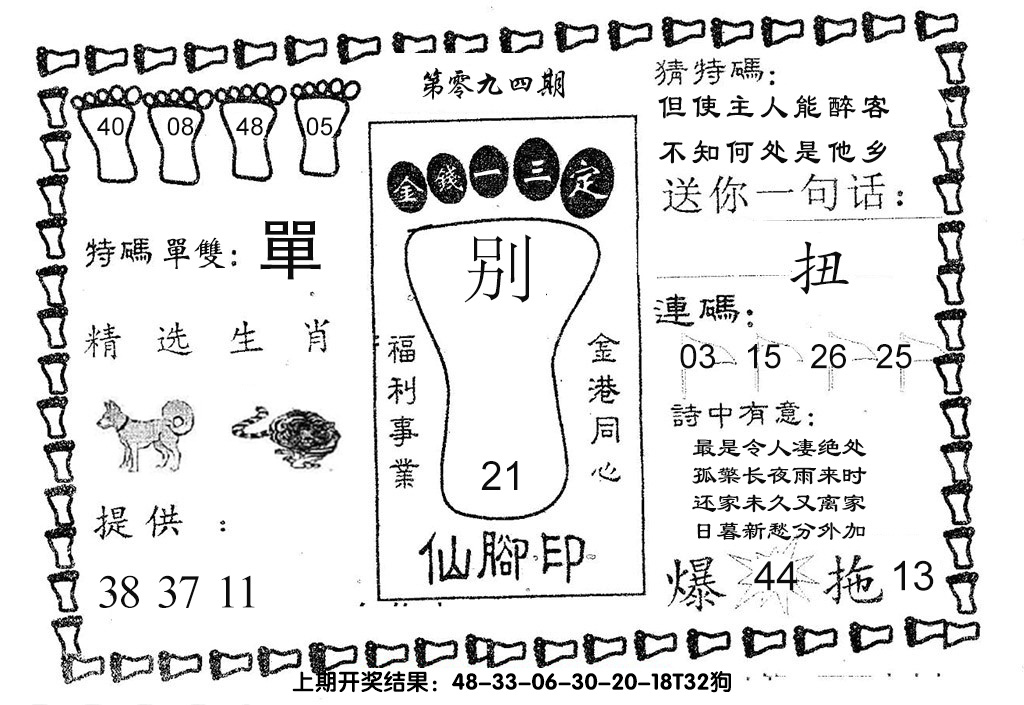 第零九四期
40 08 48 05
特碼單雙：單
精选生肖
提供：
38 37 11
金錢一三定
别
福利事業
金港同心
21
仙腳印
猜特碼：
但使主人能醉客
不知何处是他乡
送你一句话：
扭
連碼：
03 15 26 25
詩中有意：
最是令人凄绝处
孤檠长夜雨来时
还家未久又离家
日暮新愁分外加
爆 44 拖 13
上期开奖结果：48-33-06-30-20-18T32狗